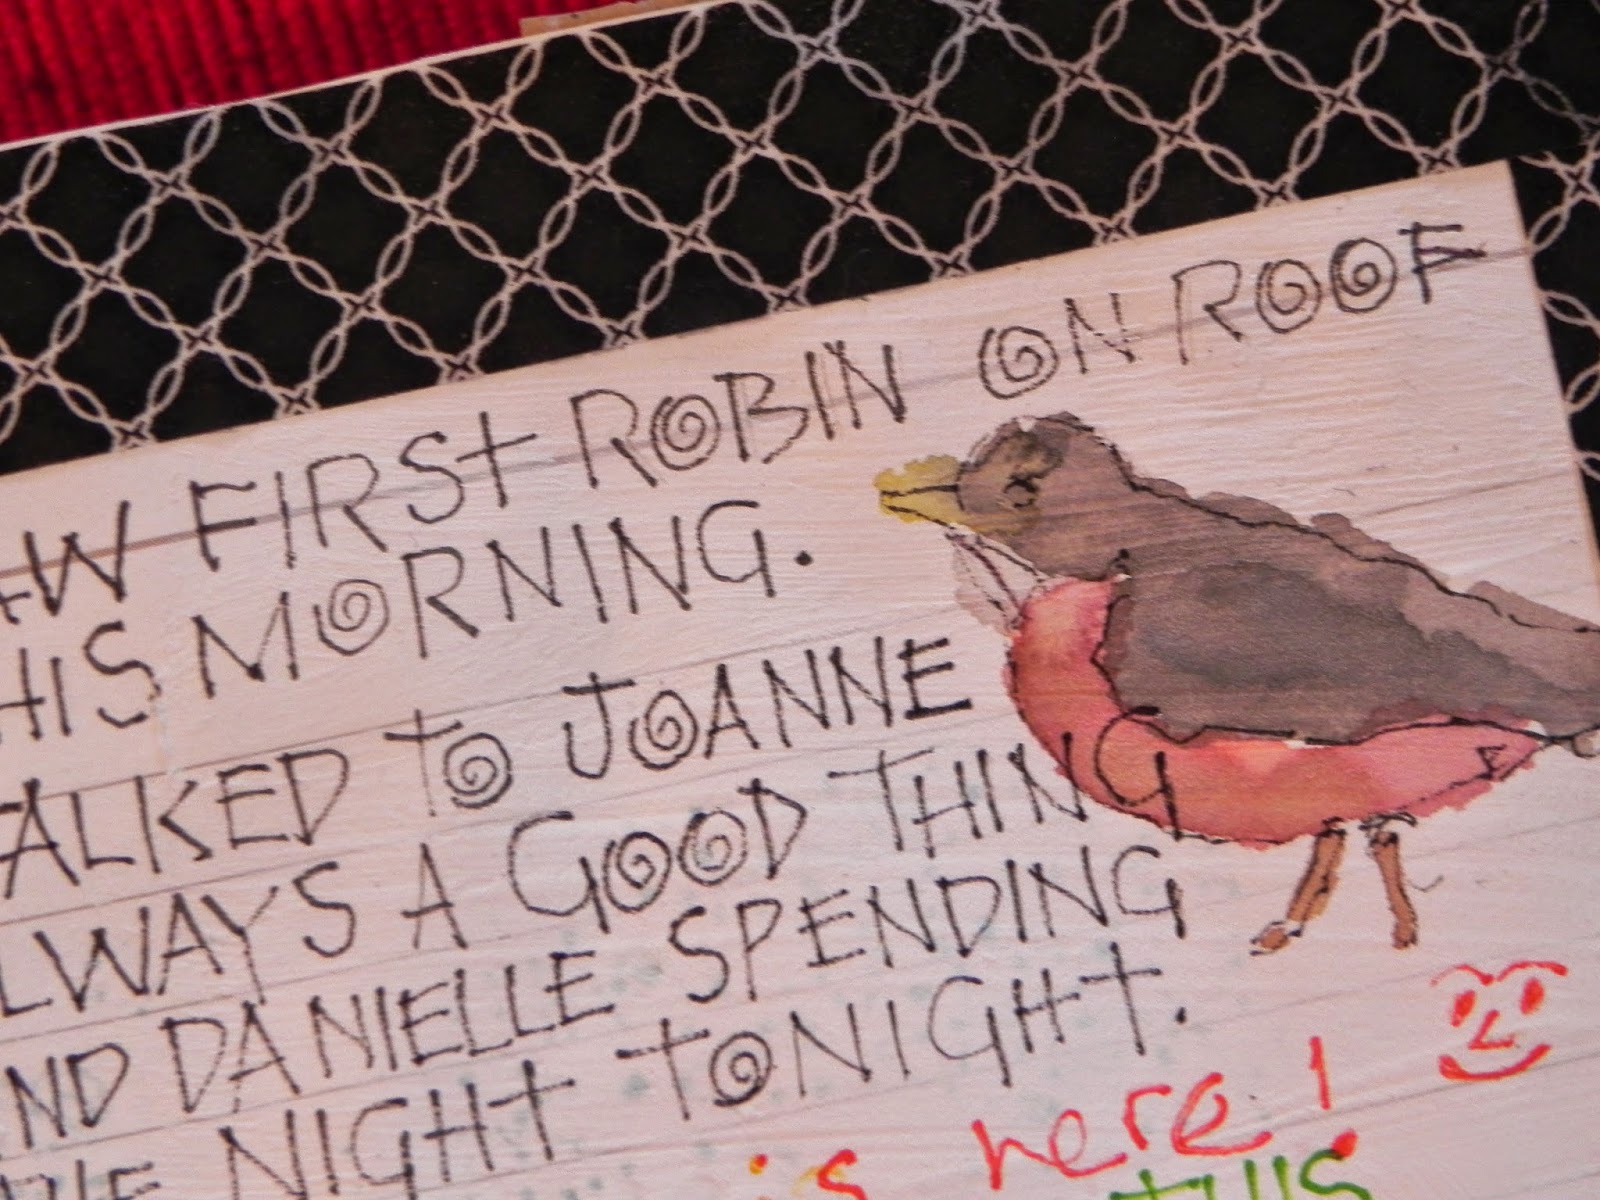 AW FIRST ROBIN ON ROOF
HIS MORNING.
ALKED TO JOANNE
LWAYS A GOOD THING
ND DANIELLE SPENDING
HE NIGHT TONIGHT.
is here!
THIS